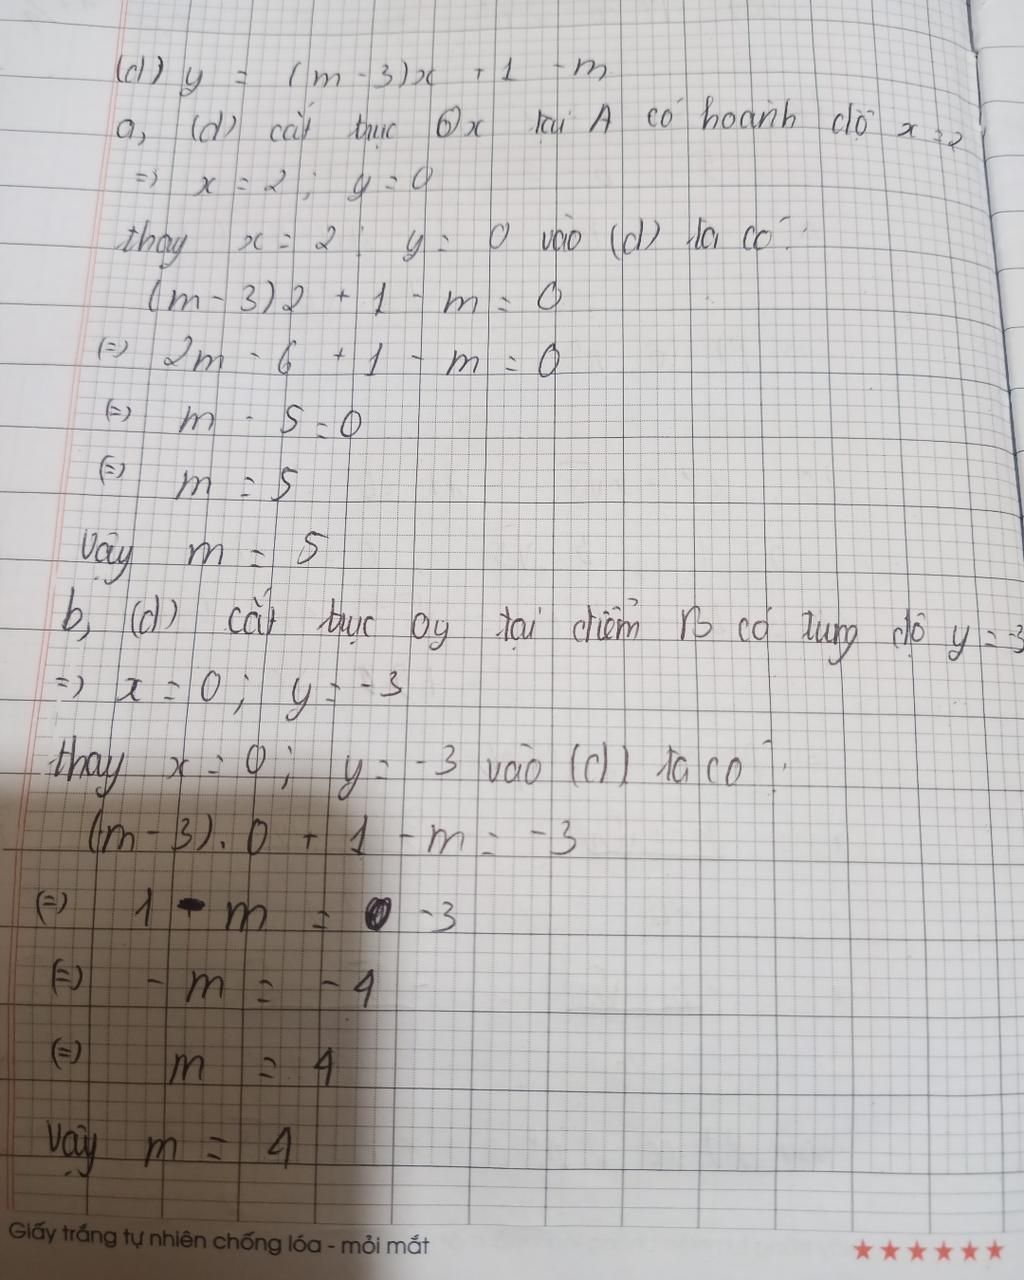 (d) y = (m - 3)x + 1 - m
a, (d) cắt trục Ox tại A có hoành độ x = 2
=> x = 2; y = 0
thay x = 2; y = 0 vào (d) ta có:
(m - 3)2 + 1 - m = 0
(=) 2m - 6 + 1 - m = 0
(=) m - 5 = 0
(=) m = 5
Vậy m = 5
b, (d) cắt trục oy tại điểm B có tung độ y = -3
=> x = 0; y = -3
thay x = 0; y = -3 vào (d) ta có:
(m - 3). 0 + 1 - m = -3
(=) 1 - m = -3
(=) - m = - 4
(=) m = 4
Vậy m = 4
Giấy trắng tự nhiên chống lóa - mỏi mắt